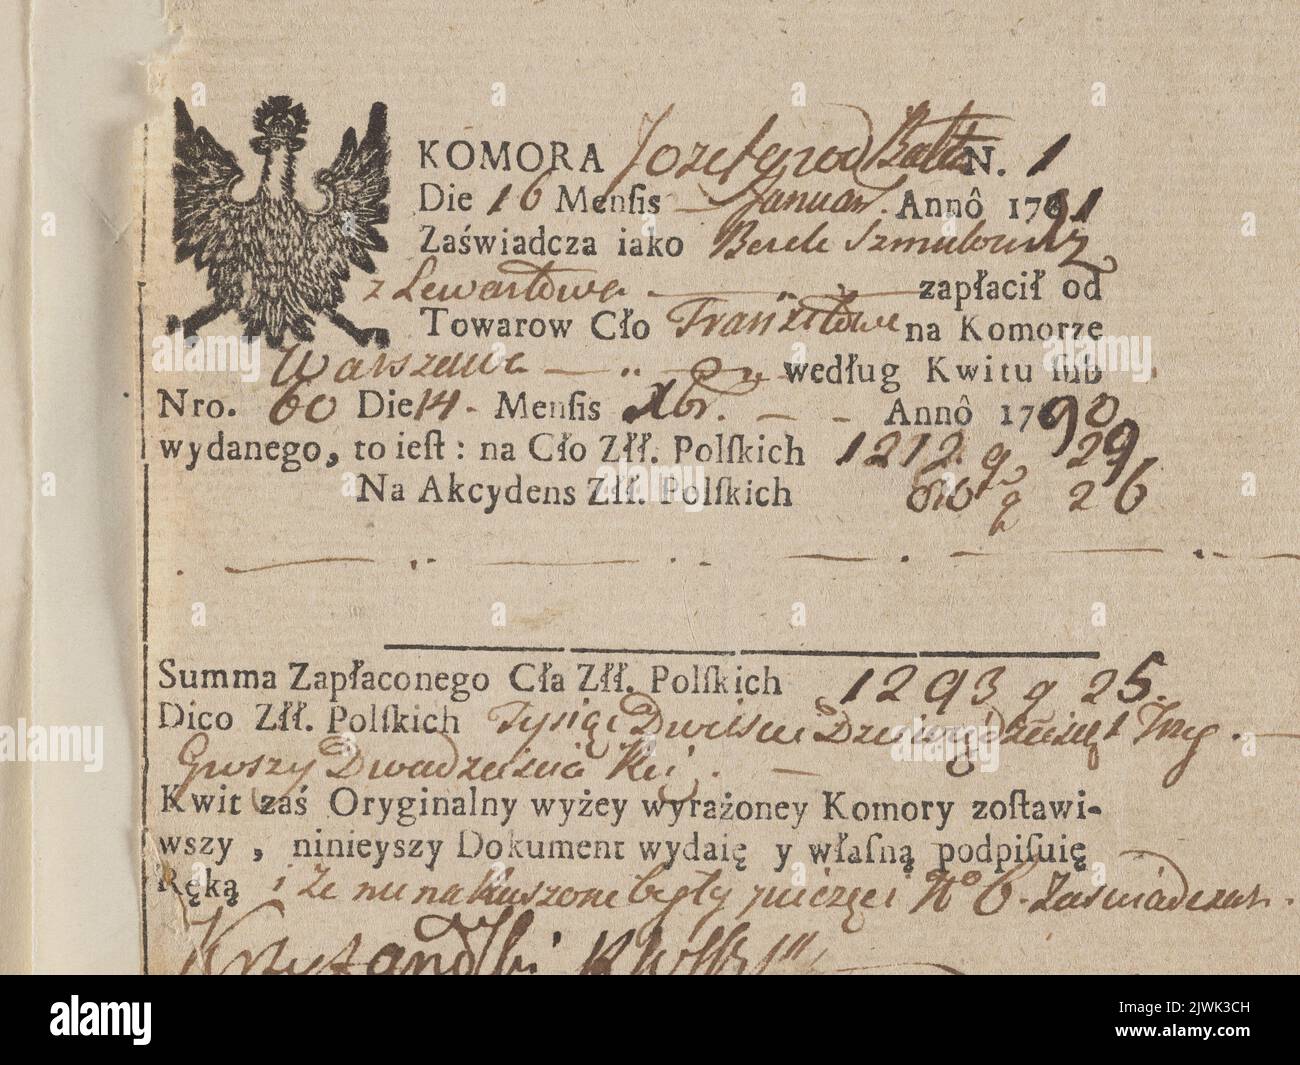 KOMORA Jozefgrod Balta N. 1
Die 16 Mensis Januar. Annô 1791
Zaświadcza iako Berek Szmulowicz
z Lewartowa zapłacił od
Towarow Cło Tranzitowe na Komorze
Warszawa według Kwitu sub
Nro. 60 Die 14. Mensis Xbr. Annô 1790
wydanego, to iest: na Cło Złł. Polskich 1212. g 29
Na Akcydens Złł. Polskich 080 g 26
Summa Zapłaconego Cła Złł. Polskich 1293 g 25.
Dico Złł. Polskich Tysiąc Dwieście Dziewiędziesięt Trzy.
Groszy Dwadzieścia
Kwit zaś Oryginalny wyżey wyrażoney Komory zostawi-
wszy, ninieyszy Dokument wydaię y własną podpisuię
Ręką i że nienaruszone były pieczęci No 6. Zaświadczam.
a alamy
Image ID: 2JWK3CH
www.alamy.com